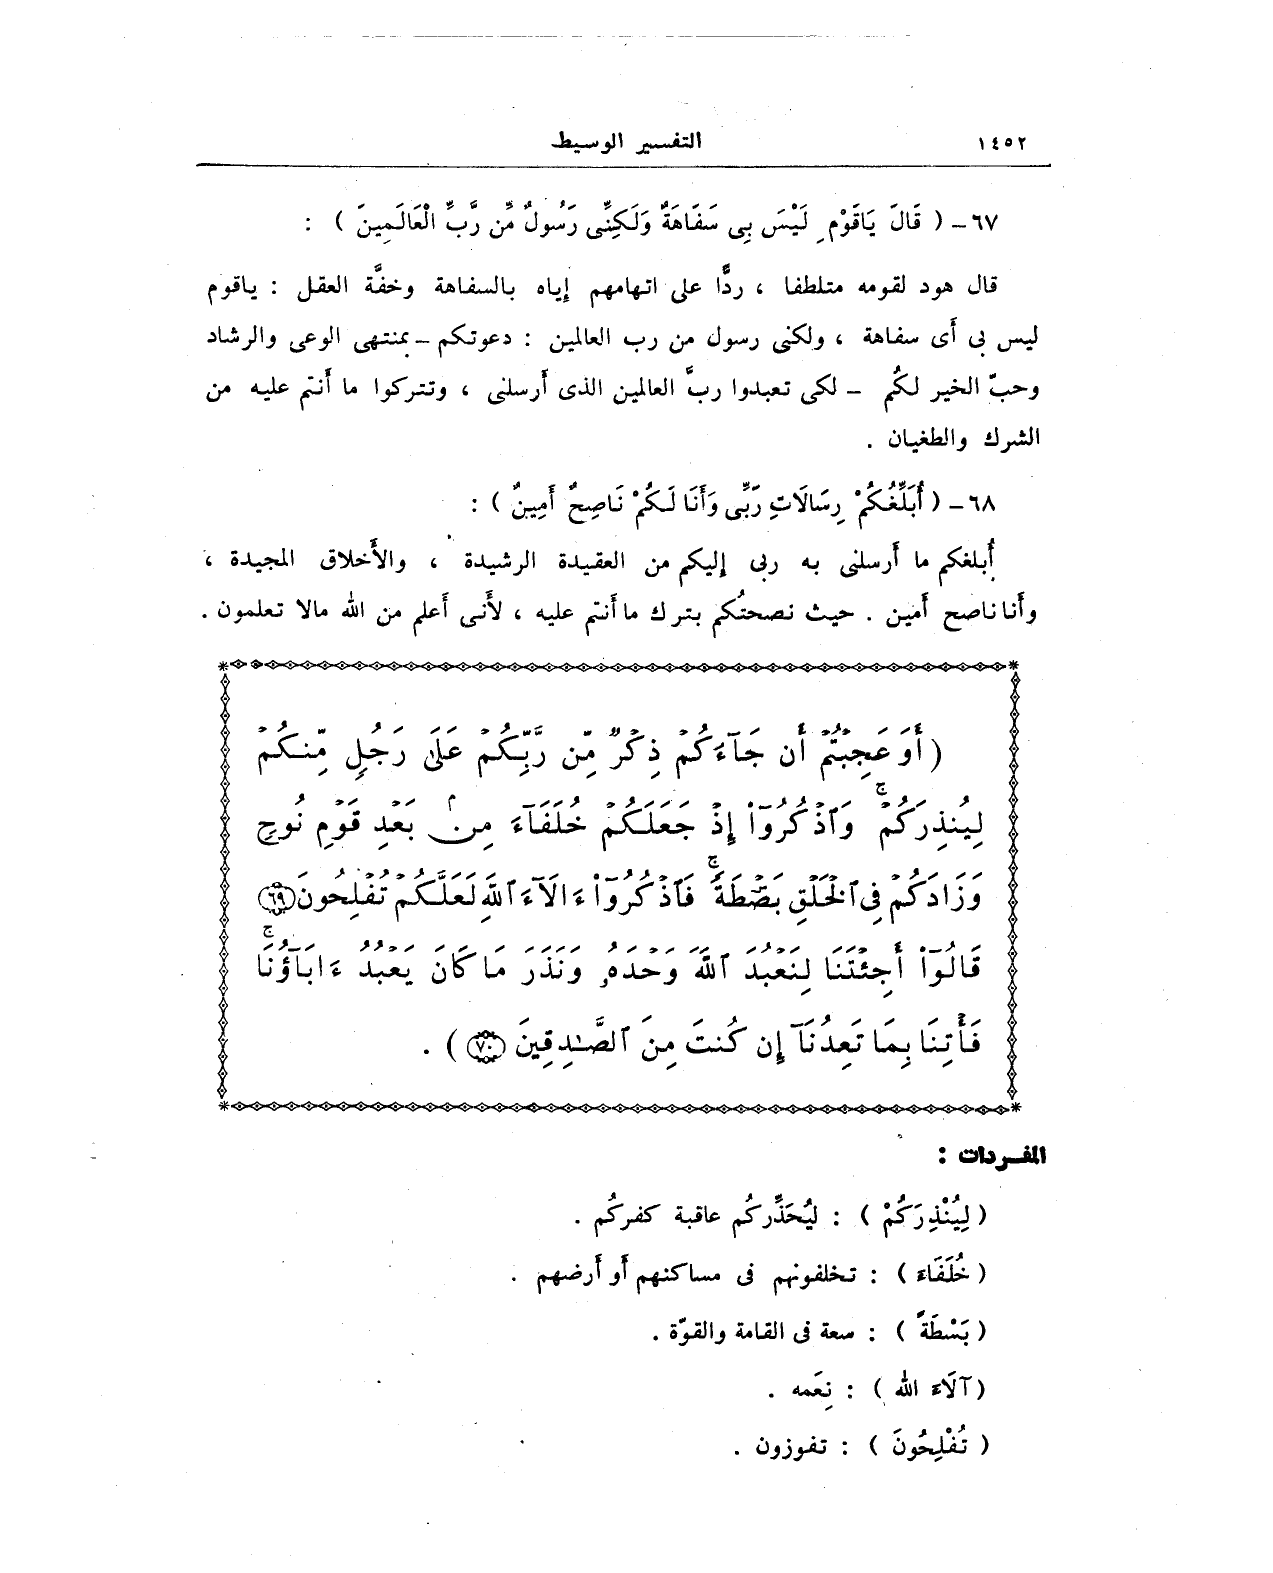 ١٤٥٢ التفسير الوسيط
٦٧ – ( قَالَ يَاقَوْمِ لَيْسَ بِى سَفَاهَةٌ وَلَكِنِّى رَسُولٌ مِّن رَّبِّ الْعَالَمِينَ ) :
قال هود لقومه متلطفا ، ردًّا على اتهامهم إياه بالسفاهة وخفَّة العقل : ياقوم
ليس بى أَى سفاهة ، ولكنى رسول من رب العالمين : دعوتكم – بمنتهى الوعى والرشاد
وحبّ الخير لكُم – لكى تعبدوا ربَّ العالمين الذى أَرسلنى ، وتتركوا ما أَنتم عليه من
الشرك والطغيان .
٦٨ – ( أُبَلِّغُكُمْ رِسَالَاتِ رَبِّى وَأَنَا لَكُمْ نَاصِحٌ أَمِينٌ ) :
أُبلغكم ما أَرسلنى به ربى إليكم من العقيدة الرشيدة ، والأَخلاق المجيدة ،
وأَنا ناصح أَمين . حيث نصحتُكم بترك ما أَنتم عليه ، لأَنى أَعلم من الله مالا تعلمون .
( أَوَعَجِبْتُمْ أَن جَآءَكُمْ ذِكْرٌ مِّن رَّبِّكُمْ عَلَىٰ رَجُلٍ مِّنكُمْ
لِيُنذِرَكُمْ ۚ وَٱذْكُرُوٓا۟ إِذْ جَعَلَكُمْ خُلَفَآءَ مِنۢ بَعْدِ قَوْمِ نُوحٍ
وَزَادَكُمْ فِى ٱلْخَلْقِ بَصْۜطَةً ۖ فَٱذْكُرُوٓا۟ ءَالَآءَ ٱللَّهِ لَعَلَّكُمْ تُفْلِحُونَ ٦٩
قَالُوٓا۟ أَجِئْتَنَا لِنَعْبُدَ ٱللَّهَ وَحْدَهُۥ وَنَذَرَ مَا كَانَ يَعْبُدُ ءَابَآؤُنَا ۖ
فَأْتِنَا بِمَا تَعِدُنَآ إِن كُنتَ مِنَ ٱلصَّـٰدِقِينَ ٧٠ ) .
المفـردات :
( لِيُنْذِرَكُمْ ) : ليُحَذِّركُم عاقبة كفركُم .
( خُلَفَاءَ ) : تخلفونهم فى مساكنهم أَو أَرضهم .
( بَسْطَةً ) : سعة فى القامة والقوّة .
( آلَاءَ الله ) : نِعَمه .
( تُفْلِحُونَ ) : تفوزون .